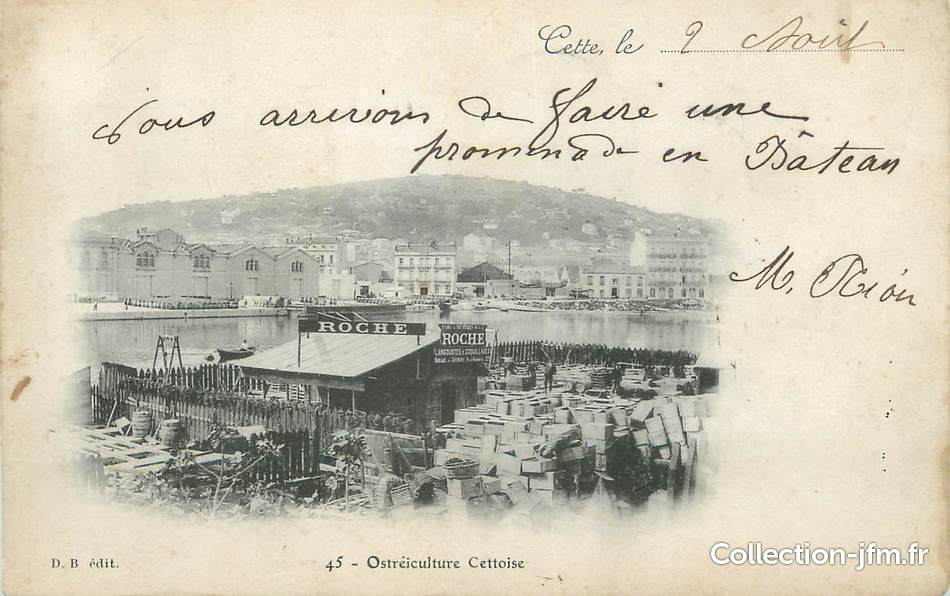 Cette, le 2 Août
Nous arrivons de faire une
promenade en Bâteau
M. Rion
ROCHE
ROCHE
LANGOUSTES & COQUILLAGES
D. B édit.
45 - Ostréiculture Cettoise
Collection-jfm.fr